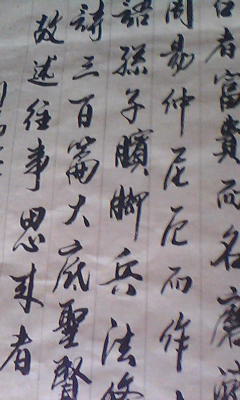 者富貴而名磨滅
周易仲尼厄而作
語孫子臏脚兵法修
詩三百篇大底聖賢
故述往事思来者